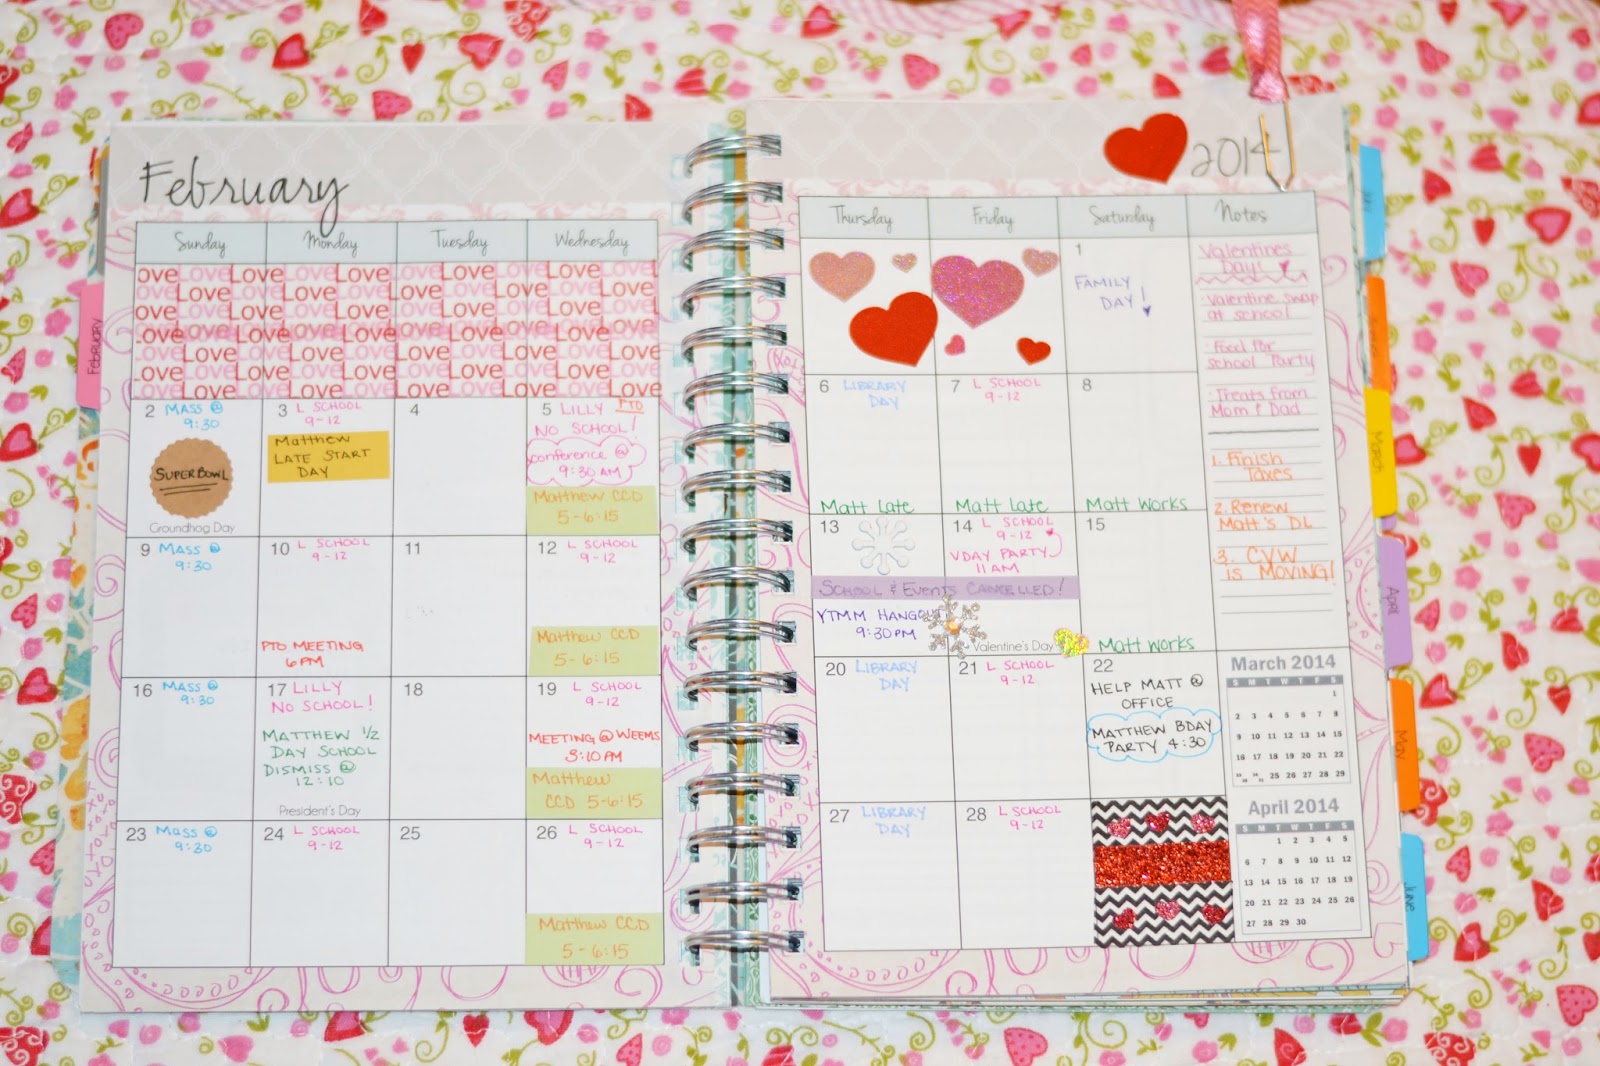 February
2014
Sunday
Monday
Tuesday
Wednesday
Thursday
Friday
Saturday
Notes
Love Love Love Love Love Love
1
FAMILY
DAY!
2 MASS @
9:30
SUPERBOWL
Groundhog Day
3 L SCHOOL
9-12
Matthew
LATE START
DAY
4
5 LILLY PTO
NO SCHOOL!
conference @
9:30 AM
Matthew CCD
5-6:15
6 LIBRARY
DAY
Matt Late
7 L SCHOOL
9-12
Matt Late
8
Matt Works
9 MASS @
9:30
10 L SCHOOL
9-12
PTO MEETING
6PM
11
12 L SCHOOL
9-12
Matthew CCD
5-6:15
13
SCHOOL & EVENTS CANCELLED!
YTMM HANGOUT
9:30PM
14 L SCHOOL
9-12
VDAY PARTY
11AM
Valentine's Day
15
Matt Works
16 MASS @
9:30
17 LILLY
NO SCHOOL!
MATTHEW 1/2
DAY SCHOOL
DISMISS @
12:10
President's Day
18
19 L SCHOOL
9-12
MEETING @ WEEMS
3:10PM
Matthew
CCD 5-6:15
20 LIBRARY
DAY
21 L SCHOOL
9-12
22
HELP MATT @
OFFICE
MATTHEW BDAY
PARTY 4:30
23 MASS @
9:30
24 L SCHOOL
9-12
25
26 L SCHOOL
9-12
Matthew CCD
5-6:15
27 LIBRARY
DAY
28 L SCHOOL
9-12
Valentines
Day!
·Valentine swap
at school
·Food for
school Party
·Treats from
Mom & Dad
1. Finish
Taxes
2. Renew
Matt's DL
3. CVW
is MOVING!
March 2014
S M T W T F S
1
2 3 4 5 6 7 8
9 10 11 12 13 14 15
16 17 18 19 20 21 22
23/30 24/31 25 26 27 28 29
April 2014
S M T W T F S
1 2 3 4 5
6 7 8 9 10 11 12
13 14 15 16 17 18 19
20 21 22 23 24 25 26
27 28 29 30
February
March
April
May
June